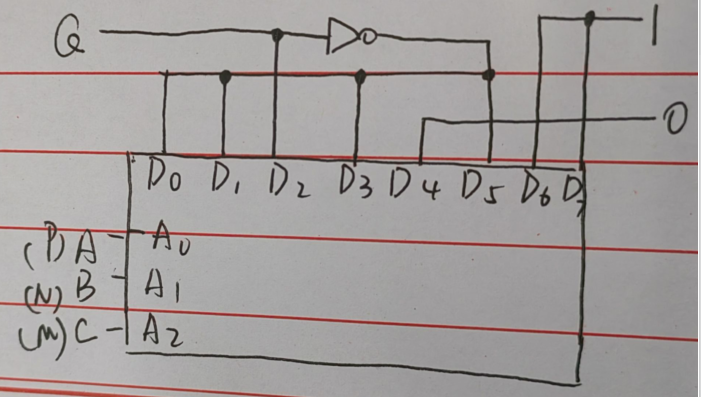 Q 1
0
D0 D1 D2 D3 D4 D5 D6 D7
(P) A A0
(N) B A1
(M) C A2